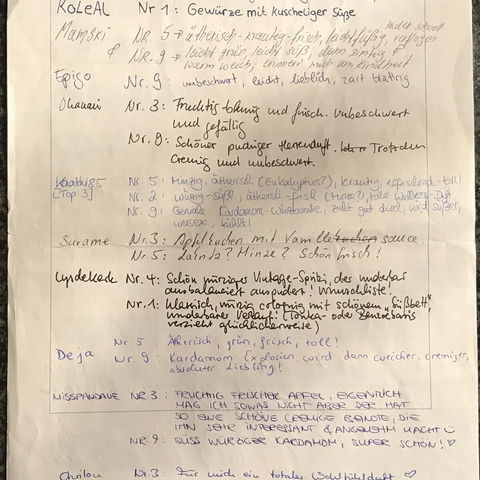 KoLeAL Nr 1: Gewürze mit kuscheliger Süße
leider schnell
Mamski NR. 5 → ätherisch-krautig-frisch, leichtfüßig, verflogen
& NR. 9 → leicht grün, leicht süß, dann cremig &
warm weich, erinnert mich an Kindheit
Epigo Nr. 9: unbeschwert, leicht, lieblich, zart blumig
Nr. 3: Fruchtig und frisch. Unbeschwert
und gefällig
Nr. 9: Schöner pudriger Herrenduft. Trotzdem
Cremig und unbeschwert.
Nr. 5: Minzig, ätherisch (Eukalyptus?), krautig, erfrischend-toll!
[Top 3] Nr. 2: würzig-süß, ätherisch-frisch (Minze?), toller Wellness-Duft
Nr. 9: Geniale Kardamom-Würzbombe, zieht gut durch, wird süßer,
unisex, kühlt!
Surame Nr. 3: Apfelkuchen mit Vanillekuchen sauce
Nr. 5: Minze? Schön frisch!
Nr. 4: Schön würziger Vintage-Spritz, des wunderbar
ausbalanciert Wunschliste!
Nr. 1: Klassisch, würzig mit schönem „Süßbett“,
wunderbarer Verlauf! (Tonka- oder
verzieht glücklicherweise)
Nr. 5 Ätherisch, grün, frisch, toll!
Deja Nr. 9: Kardamom Explosion, wird dann weicher, cremiger,
absoluter Liebling!
MISSPANDAVE NR 3: FRUCHTIG FRISCHER APFEL, EIGENTLICH
MAG ICH SOWAS NICHT ABER DER HAT
SO EINE SCHÖNE CREMIGE NOTE, DIE
IHN SEHR INTERESSANT & ANGENEHM MACHT
NR 9: SÜSS WÜRZIGER KARDAMOM, SUPER SCHÖN! ♡
Nr. 3: Für mich ein totaler Wohlfühlduft ♡